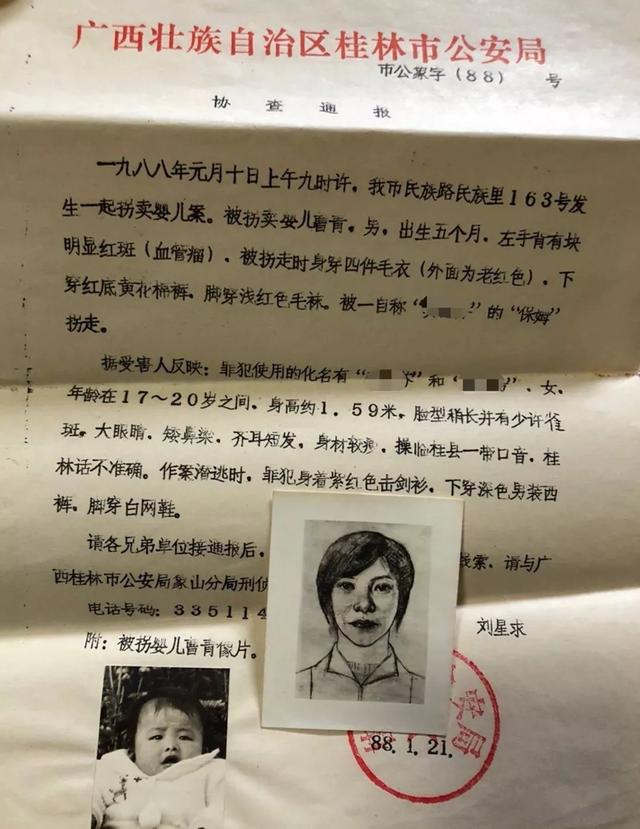 广西壮族自治区桂林市公安局
市公象字(88) 号
协查通报
一九八八年元月十日上午九时许，我市民族路民族里163号发
生一起拐卖婴儿案。被拐卖婴儿曹青，男，出生五个月，左手背有块
明显红斑（血管瘤），被拐走时身穿四件毛衣（外面为老红色），下
穿红底黄花棉裤，脚穿浅红色毛袜。被一自称“ ”的“保姆”
拐走。
据受害人反映：罪犯使用的化名有“ ”和“ ”，女，
年龄在17～20岁之间，身高约1.59米，脸型稍长并有少许雀
斑，大眼睛，矮鼻梁，齐耳短发，身材较瘦，操临桂县一带口音，桂
林话不准确。作案潜逃时，罪犯身着紫红色击剑衫，下穿深色男装西
裤，脚穿白网鞋。
请各兄弟单位接通报后， 线索，请与广
西桂林市公安局象山分局刑侦
电话号码：335114 刘星求
附：被拐婴儿曹青像片。
88.1.21.